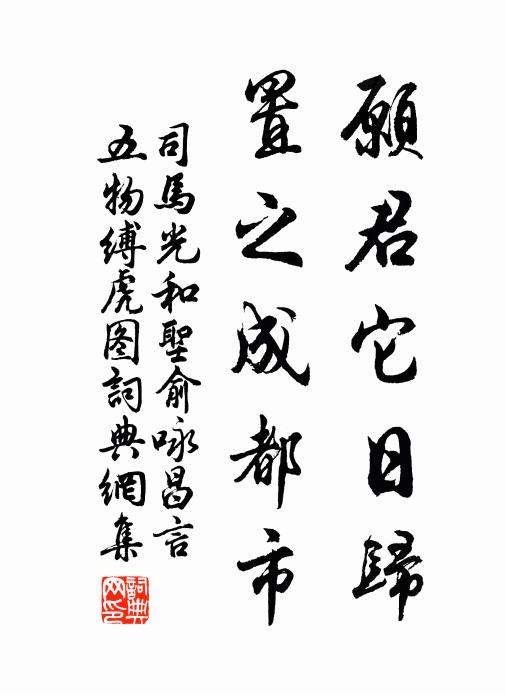 願君它日歸
置之成都市
司馬光和聖俞咏昌言
五物缚虎图詞典網集
詞典网印